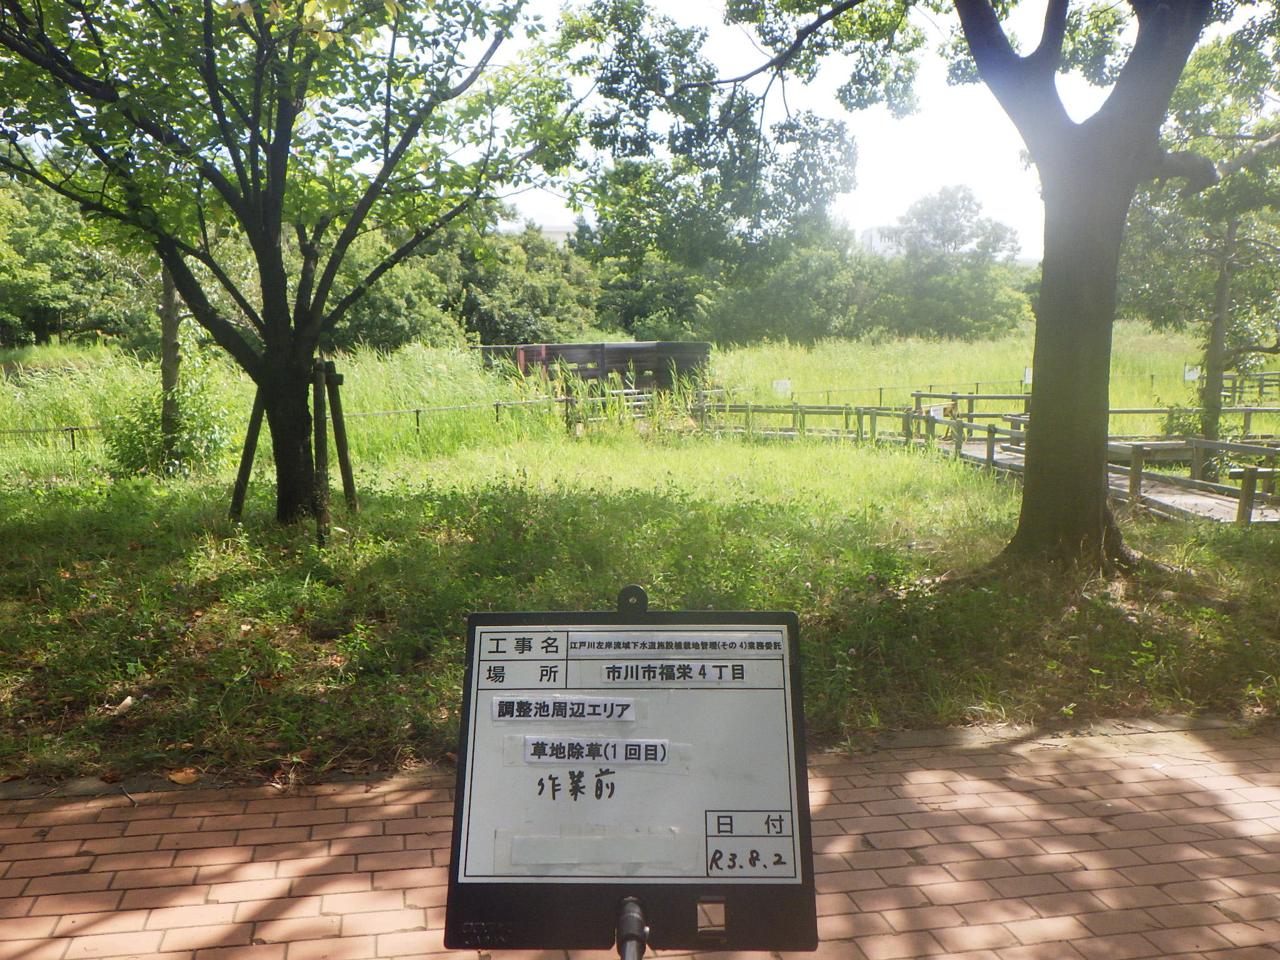 工事名 江戸川左岸流域下水道施設植栽地管理(その4)業務委託
場所 市川市福栄4丁目
調整池周辺エリア
草地除草(1回目)
作業前
日付
R3.8.2